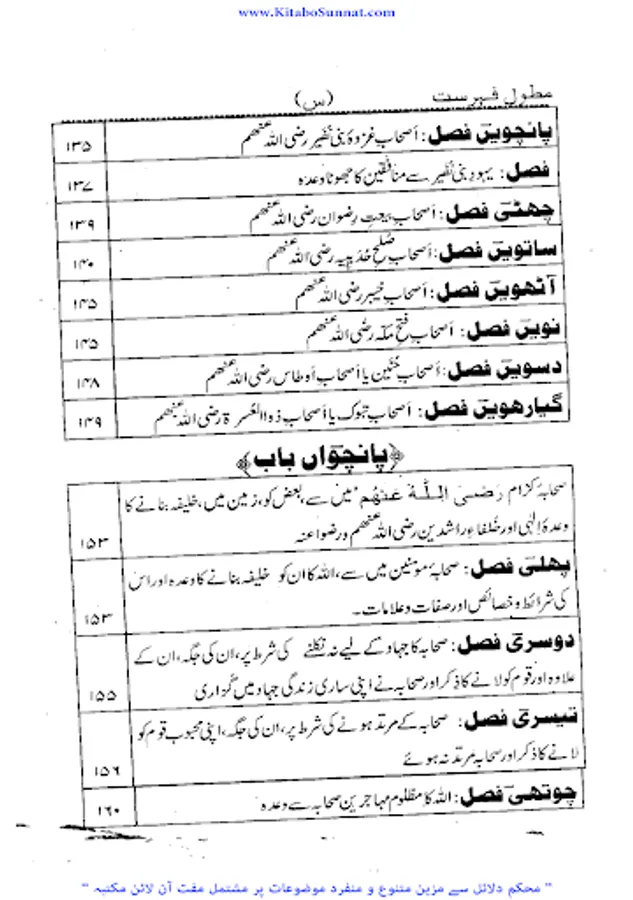 www.KitaboSunnat.com
مطول فہرست (س)
پانچویں فصل: اَصحابِ غزوۂ بنی نَضِیر رضی اللہ عنھم ۱۳۵
فصل: یہودِ بنی نَضِیر سے منافقین کا جھوٹا وعدہ ۱۳۷
چھٹی فصل: اَصحابِ بیعتِ رضوان رضی اللہ عنھم ۱۳۹
ساتویں فصل: اَصحابِ صُلحِ حُدَیبِیہ رضی اللہ عنھم ۱۴۰
آٹھویں فصل: اَصحابِ خیبر رضی اللہ عنھم ۱۴۵
نویں فصل: اَصحابِ فتحِ مکّہ رضی اللہ عنھم ۱۴۵
دسویں فصل: اَصحابِ حُنَین یا اَصحابِ اَوطاس رضی اللہ عنھم ۱۴۸
گیارھویں فصل: اَصحابِ تبُوک یا اَصحابِ ذوالعُسرۃ رضی اللہ عنھم ۱۴۹
﴿پانچواں باب﴾
صحابۂ کرام رَضِیَ اللّٰهُ عَنْهُم میں سے، بعض کو، زمین میں، خلیفہ بنانے کا
وعدۂ الٰہی اور خُلفاءِ راشدین رضی اللہ عنھم ورضوا عنہ ۱۵۳
پہلی فصل: صحابہ مومنین میں سے، اللہ کا ان کو خلیفہ بنانے کا وعدہ اور اس
کی شرائط و خصائص اور صفات و علامات۔ ۱۵۳
دوسری فصل: صحابہ کا جہاد کے لیے نہ نکلنے کی شرط پر، ان کی جگہ، ان کے
علاوہ اور قوم کو لانے کا ذکر اور صحابہ نے اپنی ساری زندگی جہاد میں گزاری ۱۵۵
تیسری فصل: صحابہ کے مرتد ہونے کی شرط پر، ان کی جگہ، اپنی محبوب قوم کو
لانے کا ذکر اور صحابہ مرتد نہ ہوئے ۱۵۶
چوتھی فصل: اللہ کا مظلوم مہاجرین صحابہ سے وعدہ ۱۶۰
" محکم دلائل سے مزین متنوع و منفرد موضوعات پر مشتمل مفت آن لائن مکتبہ "